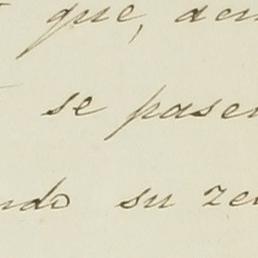 que, den
se pasen
ndo su ze